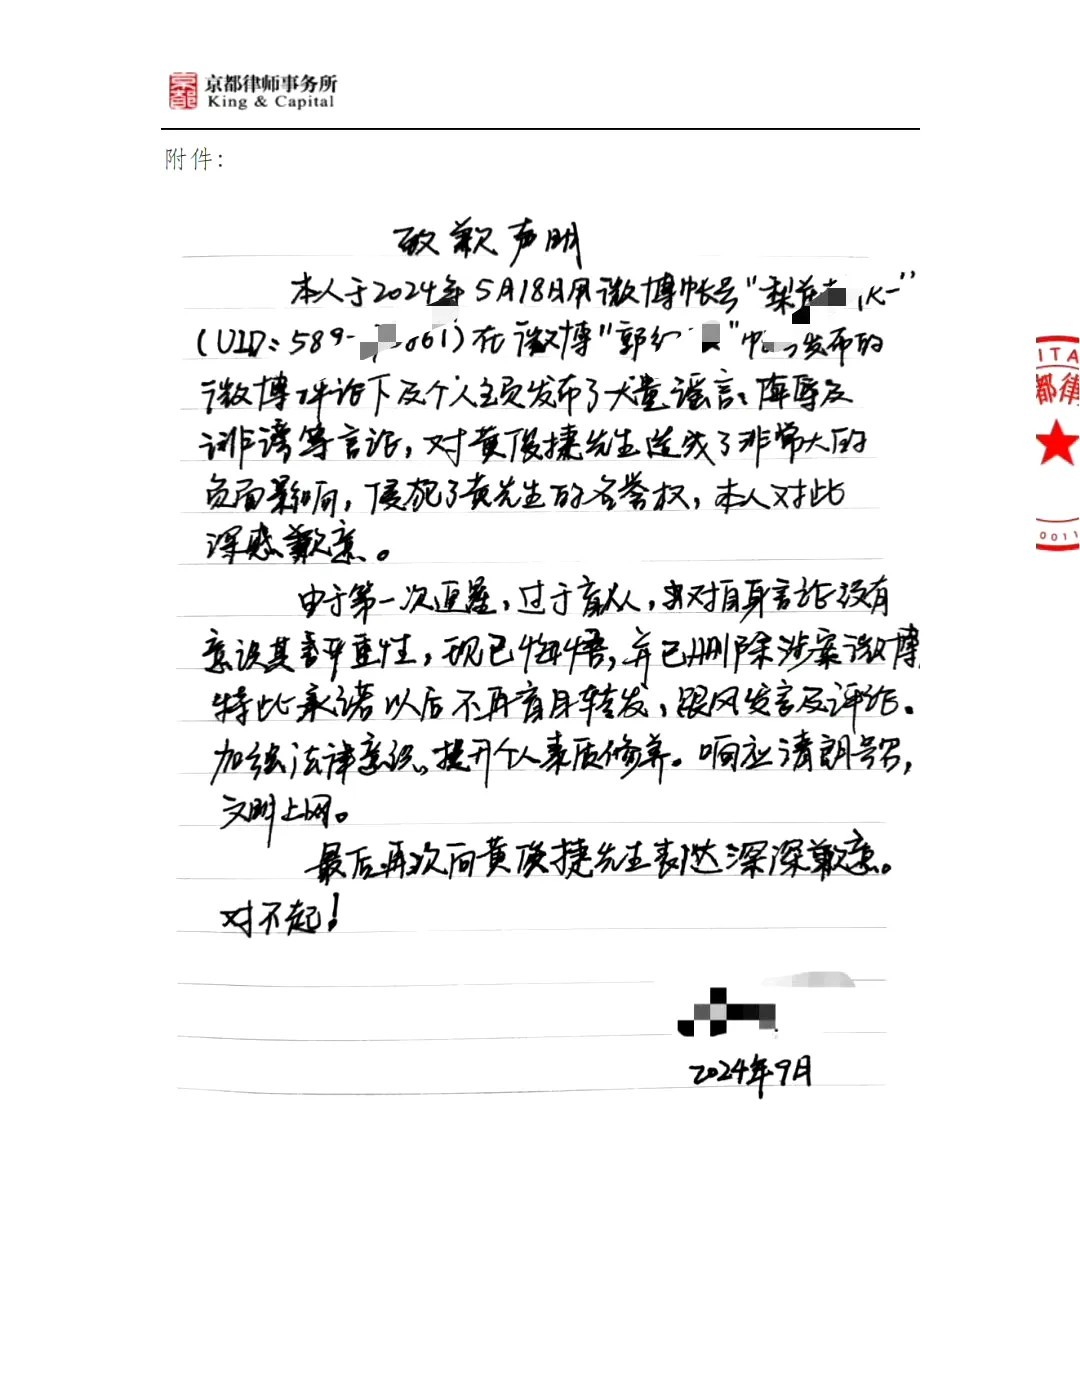 京都律师事务所
King & Capital
附件：
致歉声明
本人于2024年5月18日用微博帐号“梨 K一”
(UID：589- 061)在微博“郭 ” 发布的
微博评论下及个人主页发布了大量谣言、侮辱及
诽谤等言论，对黄俊捷先生造成了非常大的
负面影响，侵犯了黄先生的名誉权，本人对此
深感歉意。
由于第一次追星，过于盲从，并对自身言论没有
意识其严重性，现已悔悟，并已删除涉案微博
特此承诺以后不再盲目转发，跟风发言及评论。
加强法律意识、提升个人素质修养。响应清朗号召，
文明上网。
最后再次向黄俊捷先生表达深深歉意。
对不起！
2024年9月
ITA
都律
0011